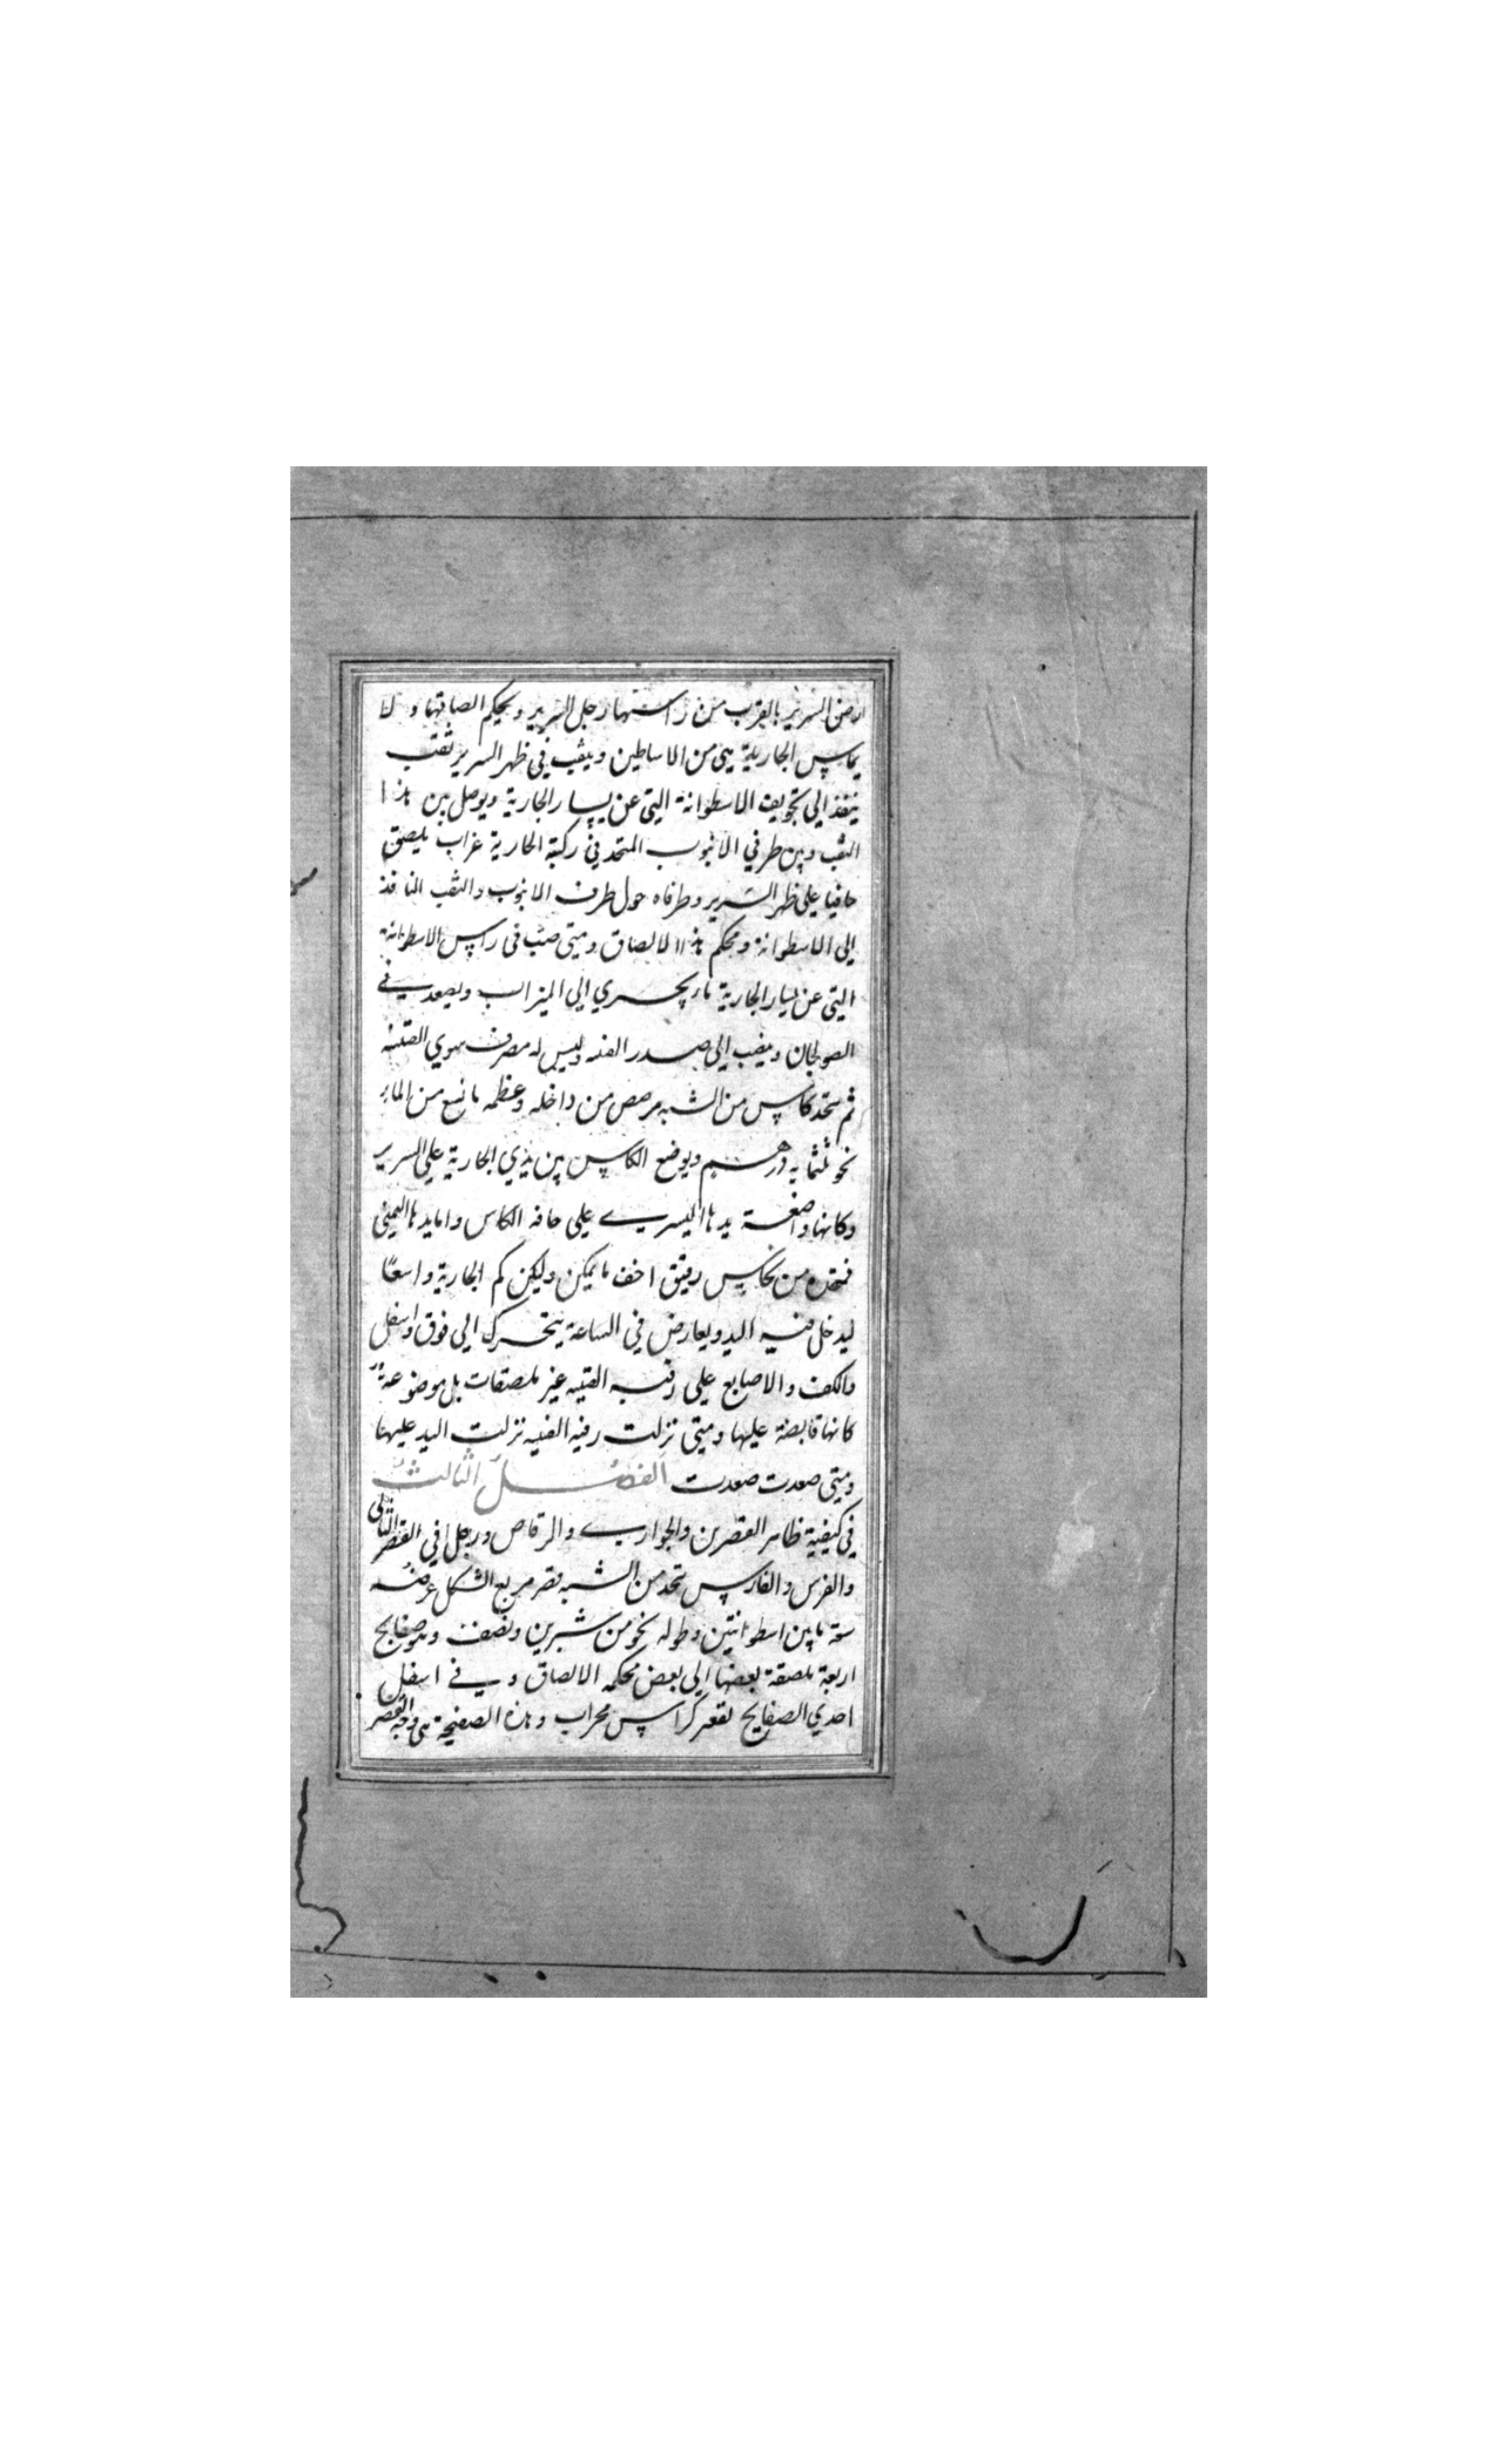 ارض السرير بالقرب من راستها رجل السرير ويحكم الصاقها ولا
يماس الجارية شي من الاساطين ويثقب في ظهر السرير ثقب
ينفذ الي تجويف الاسطوانة التي عن يسار الجارية ويوصل بين هذا
الثقب وبين طرفي الانبوب المتحد في ركبة الجارية غراب يلصق
حافتا علي ظهر السرير وطرفاه حول طرف الانبوب والثقب النافذ
الي الاسطوانة ومحكم هذا الالصاق ومتي صب في راس الاسطوانة
التي عن يسار الجارية ماء يجري الي الميزاب ويصعد في
الصولجان وينصب الي صدر القنينه وليس له مصرف سوي القنينه
ثم يتحد كاس من الشبه مرصص من داخله وعظمه ما يسع من الماء
نحو ثلثمايه درهم ويوضع الكاس بين يدي الجارية علي السرير
وكانها واضعة يدها اليسري علي حافه الكاس واما يدها اليمني
فتتخذ من نحاس رقيق اخف ما يمكن وليكن كم الجارية واسعًا
ليدخل فيه اليد ويعارض في الساعة يتحرك الي فوق واسفل
والكف والاصابع علي رقبه القنينه غير ملصقات بل موضوعة
كانها قابضة عليها ومتي نزلت رقبه القنينه نزلت اليد عليها
ومتي صعدت صعدت الفصل الثالث
في كيفية ظاهر القصرين والجواري والرقاص ورجل في القصر الثاني
والفرس والفارس يتحد من الشبه قصر مربع الشكل عرضه
سعة ما بين اسطوانتين وطوله نحو من شبرين ونصف وهو صفايح
اربعة ملصقة بعضها الي بعض محكمه الالصاق وفي اسفل
احدي الصفايح تقعر كراس محراب وهذه الصفيحة هي وجه القصر